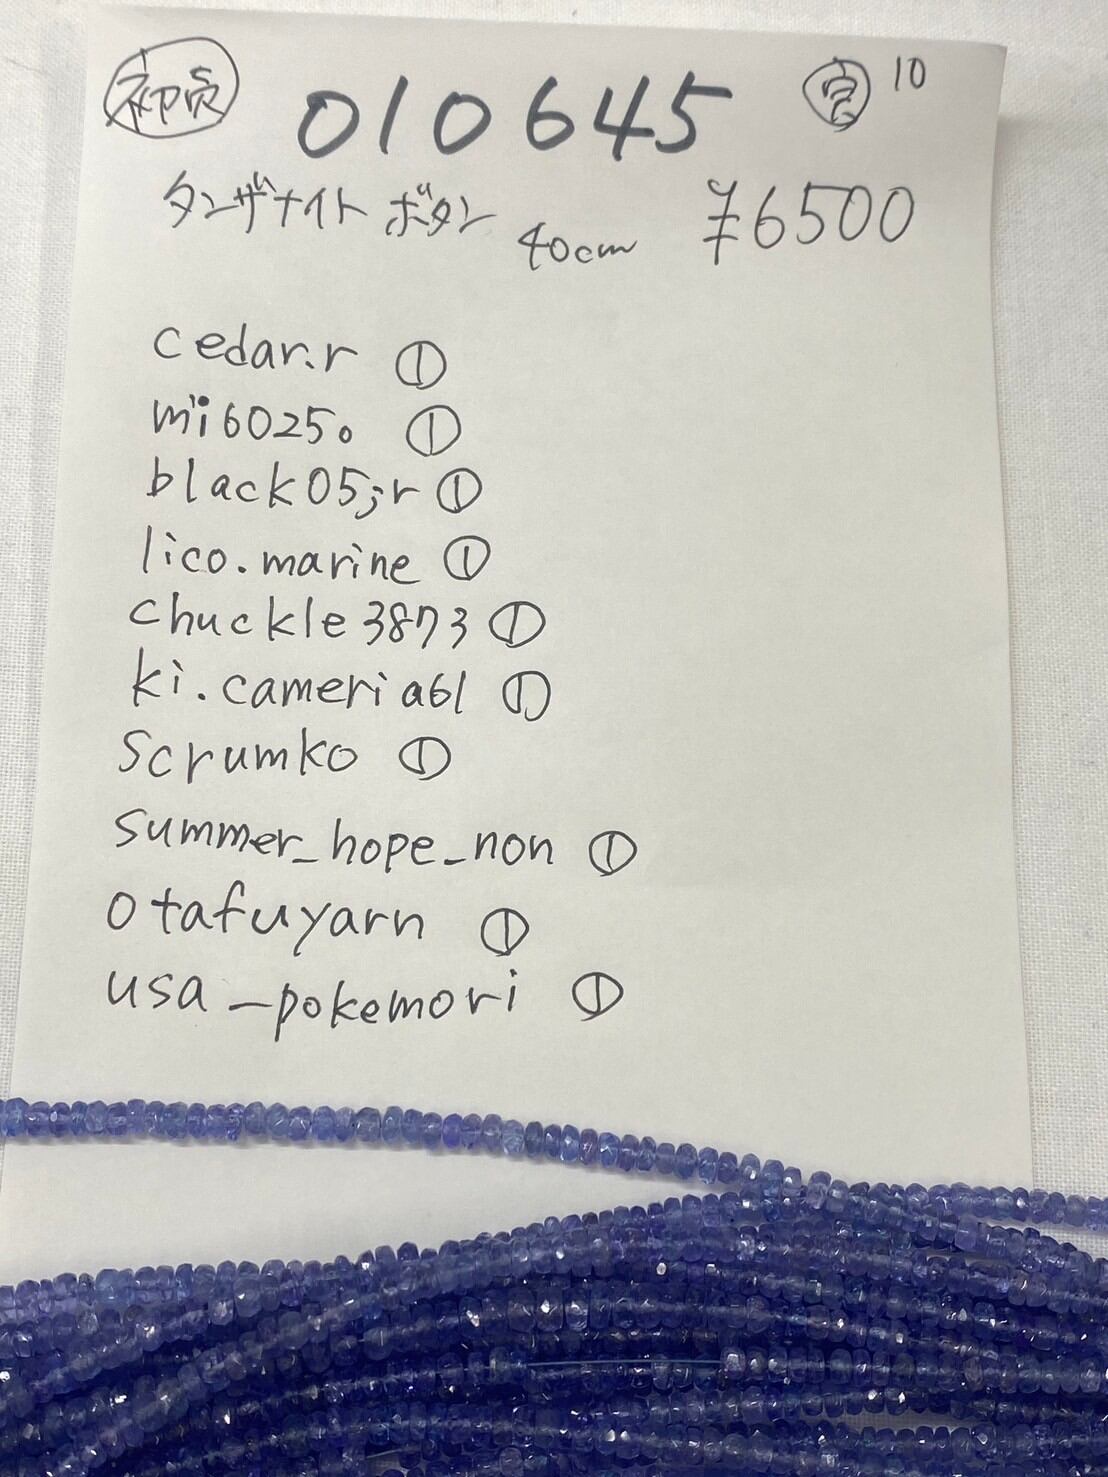 010645 10
タンザナイト ボタン 40cm ¥6500
cedar.r ①
mi60250 ①
black05jr ①
lico.marine ①
chuckle3873 ①
ki.cameria61 ①
scrumko ①
summer_hope_non ①
otafuyarn ①
usa_pokemori ①